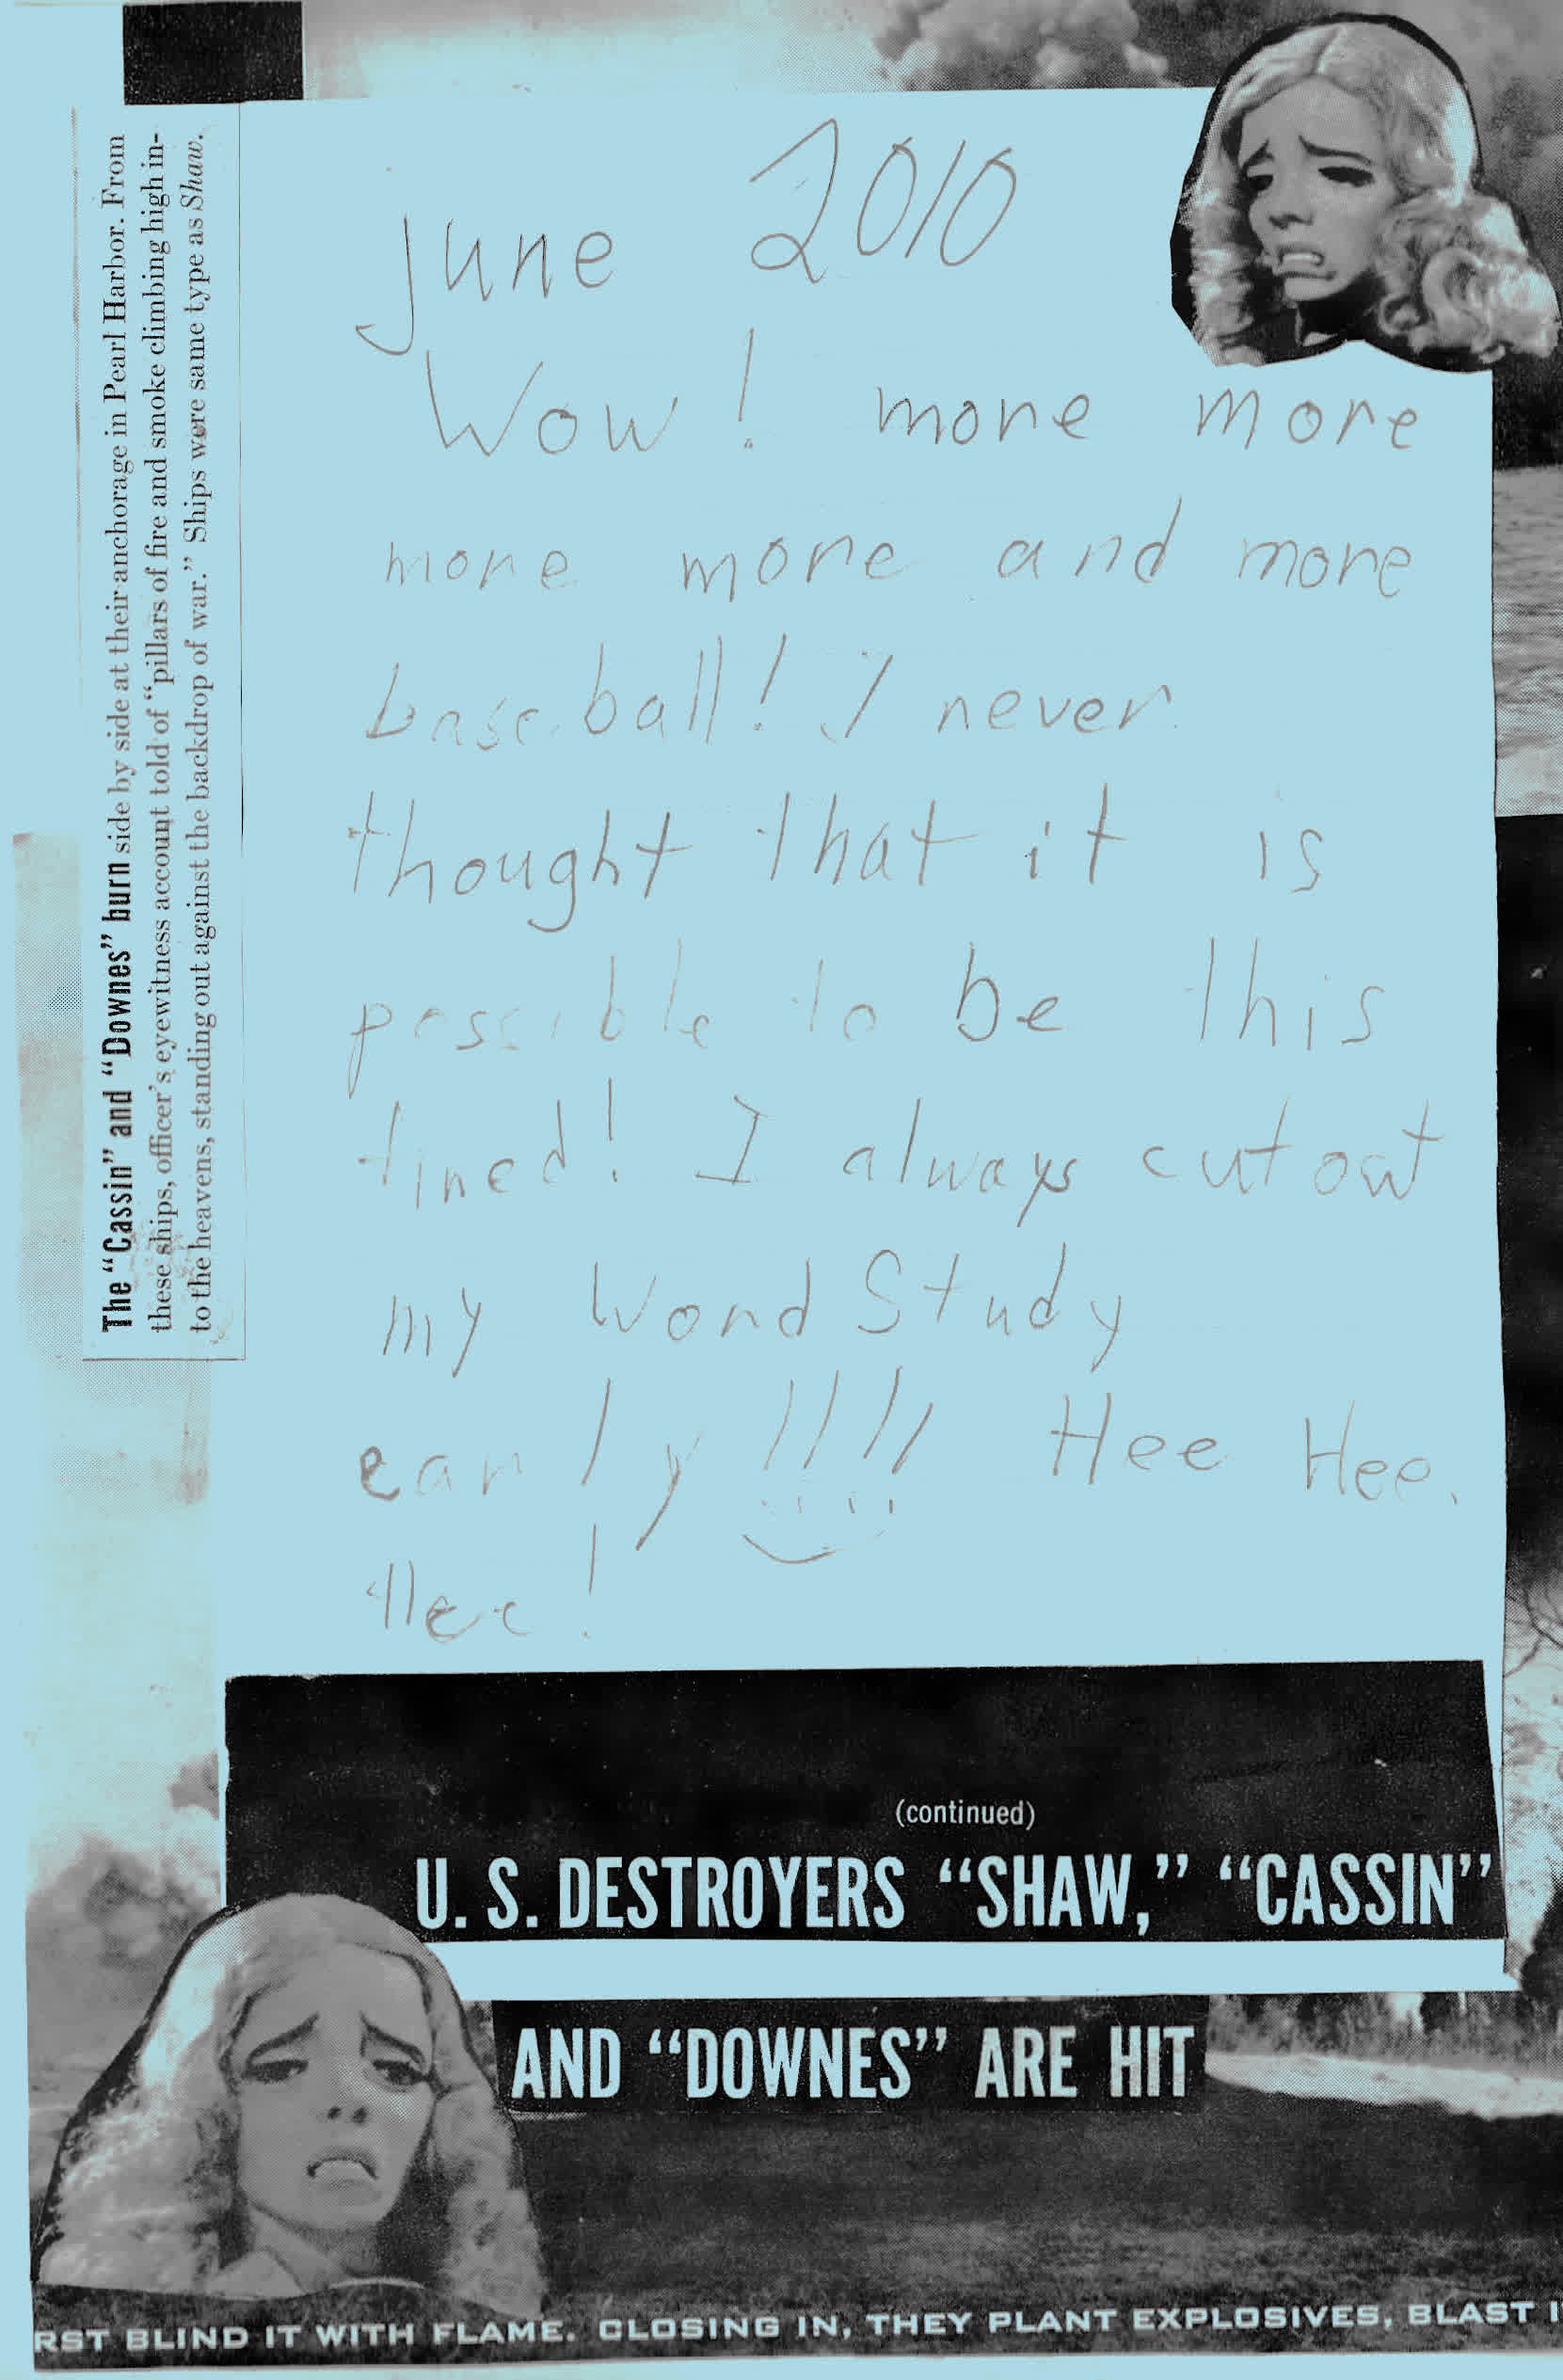 The "Cassin" and "Downes" burn side by side at their anchorage in Pearl Harbor. From
these ships, officer's eyewitness account told of "pillars of fire and smoke climbing high in-
to the heavens, standing out against the backdrop of war." Ships were same type as Shaw.
june 2010
Wow! more more
more more and more
baseball! I never
thought that it is
possible to be this
tired! I always cut out
my Word Study
early!!!! Hee Hee.
Hee!
(continued)
U. S. DESTROYERS "SHAW," "CASSIN"
AND "DOWNES" ARE HIT
RST BLIND IT WITH FLAME. CLOSING IN, THEY PLANT EXPLOSIVES, BLAST I